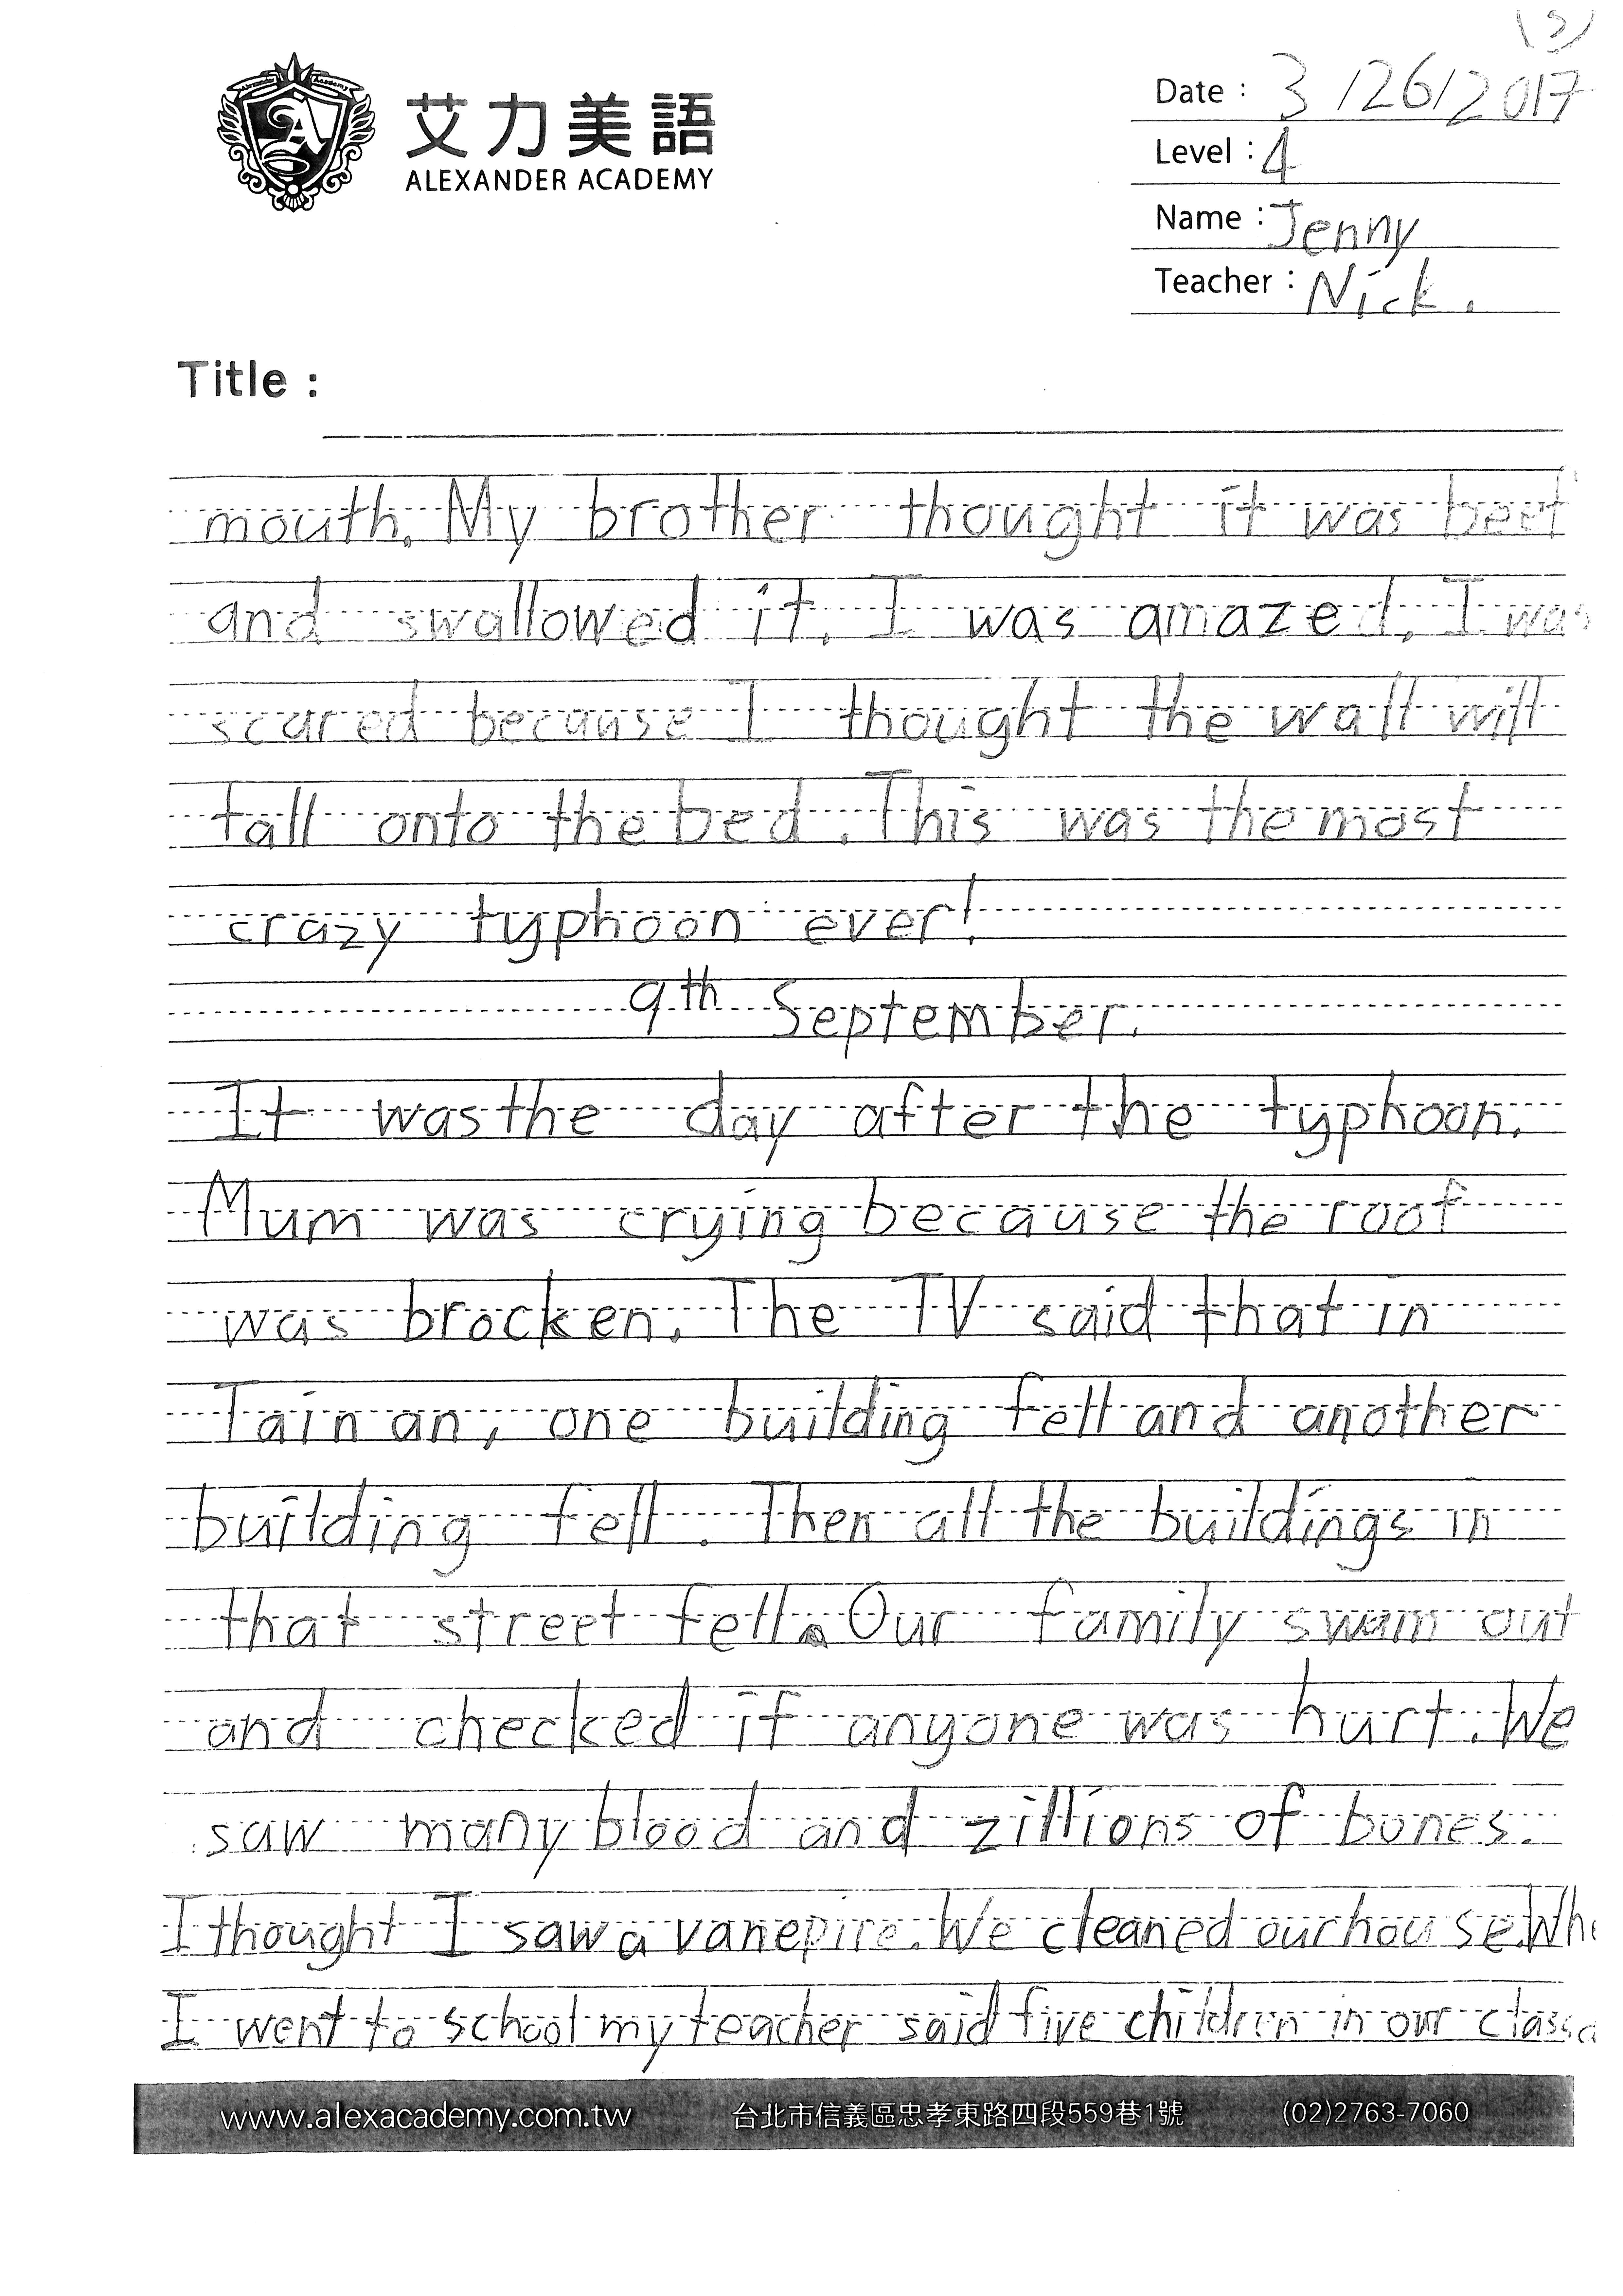 (3)
艾力美語
ALEXANDER ACADEMY
Date : 3/26/2017
Level : 4
Name : Jenny
Teacher : Nick.
Title :
mouth. My brother thought it was beef
and swallowed it. I was amazed. I was
scared because I thought the wall will
fall onto the bed. This was the most
crazy typhoon ever!
9th September.
It was the day after the typhoon.
Mum was crying because the roof
was brocken. The TV said that in
Tainan, one building fell and another
building fell. Then all the buildings in
that street fell. Our family swam out
and checked if anyone was hurt. We
saw many blood and zillions of bones.
I thought I saw a vanepire. We cleaned our house. Whe
I went to school my teacher said five children in our class
www.alexacademy.com.tw 台北市信義區忠孝東路四段559巷1號 (02)2763-7060